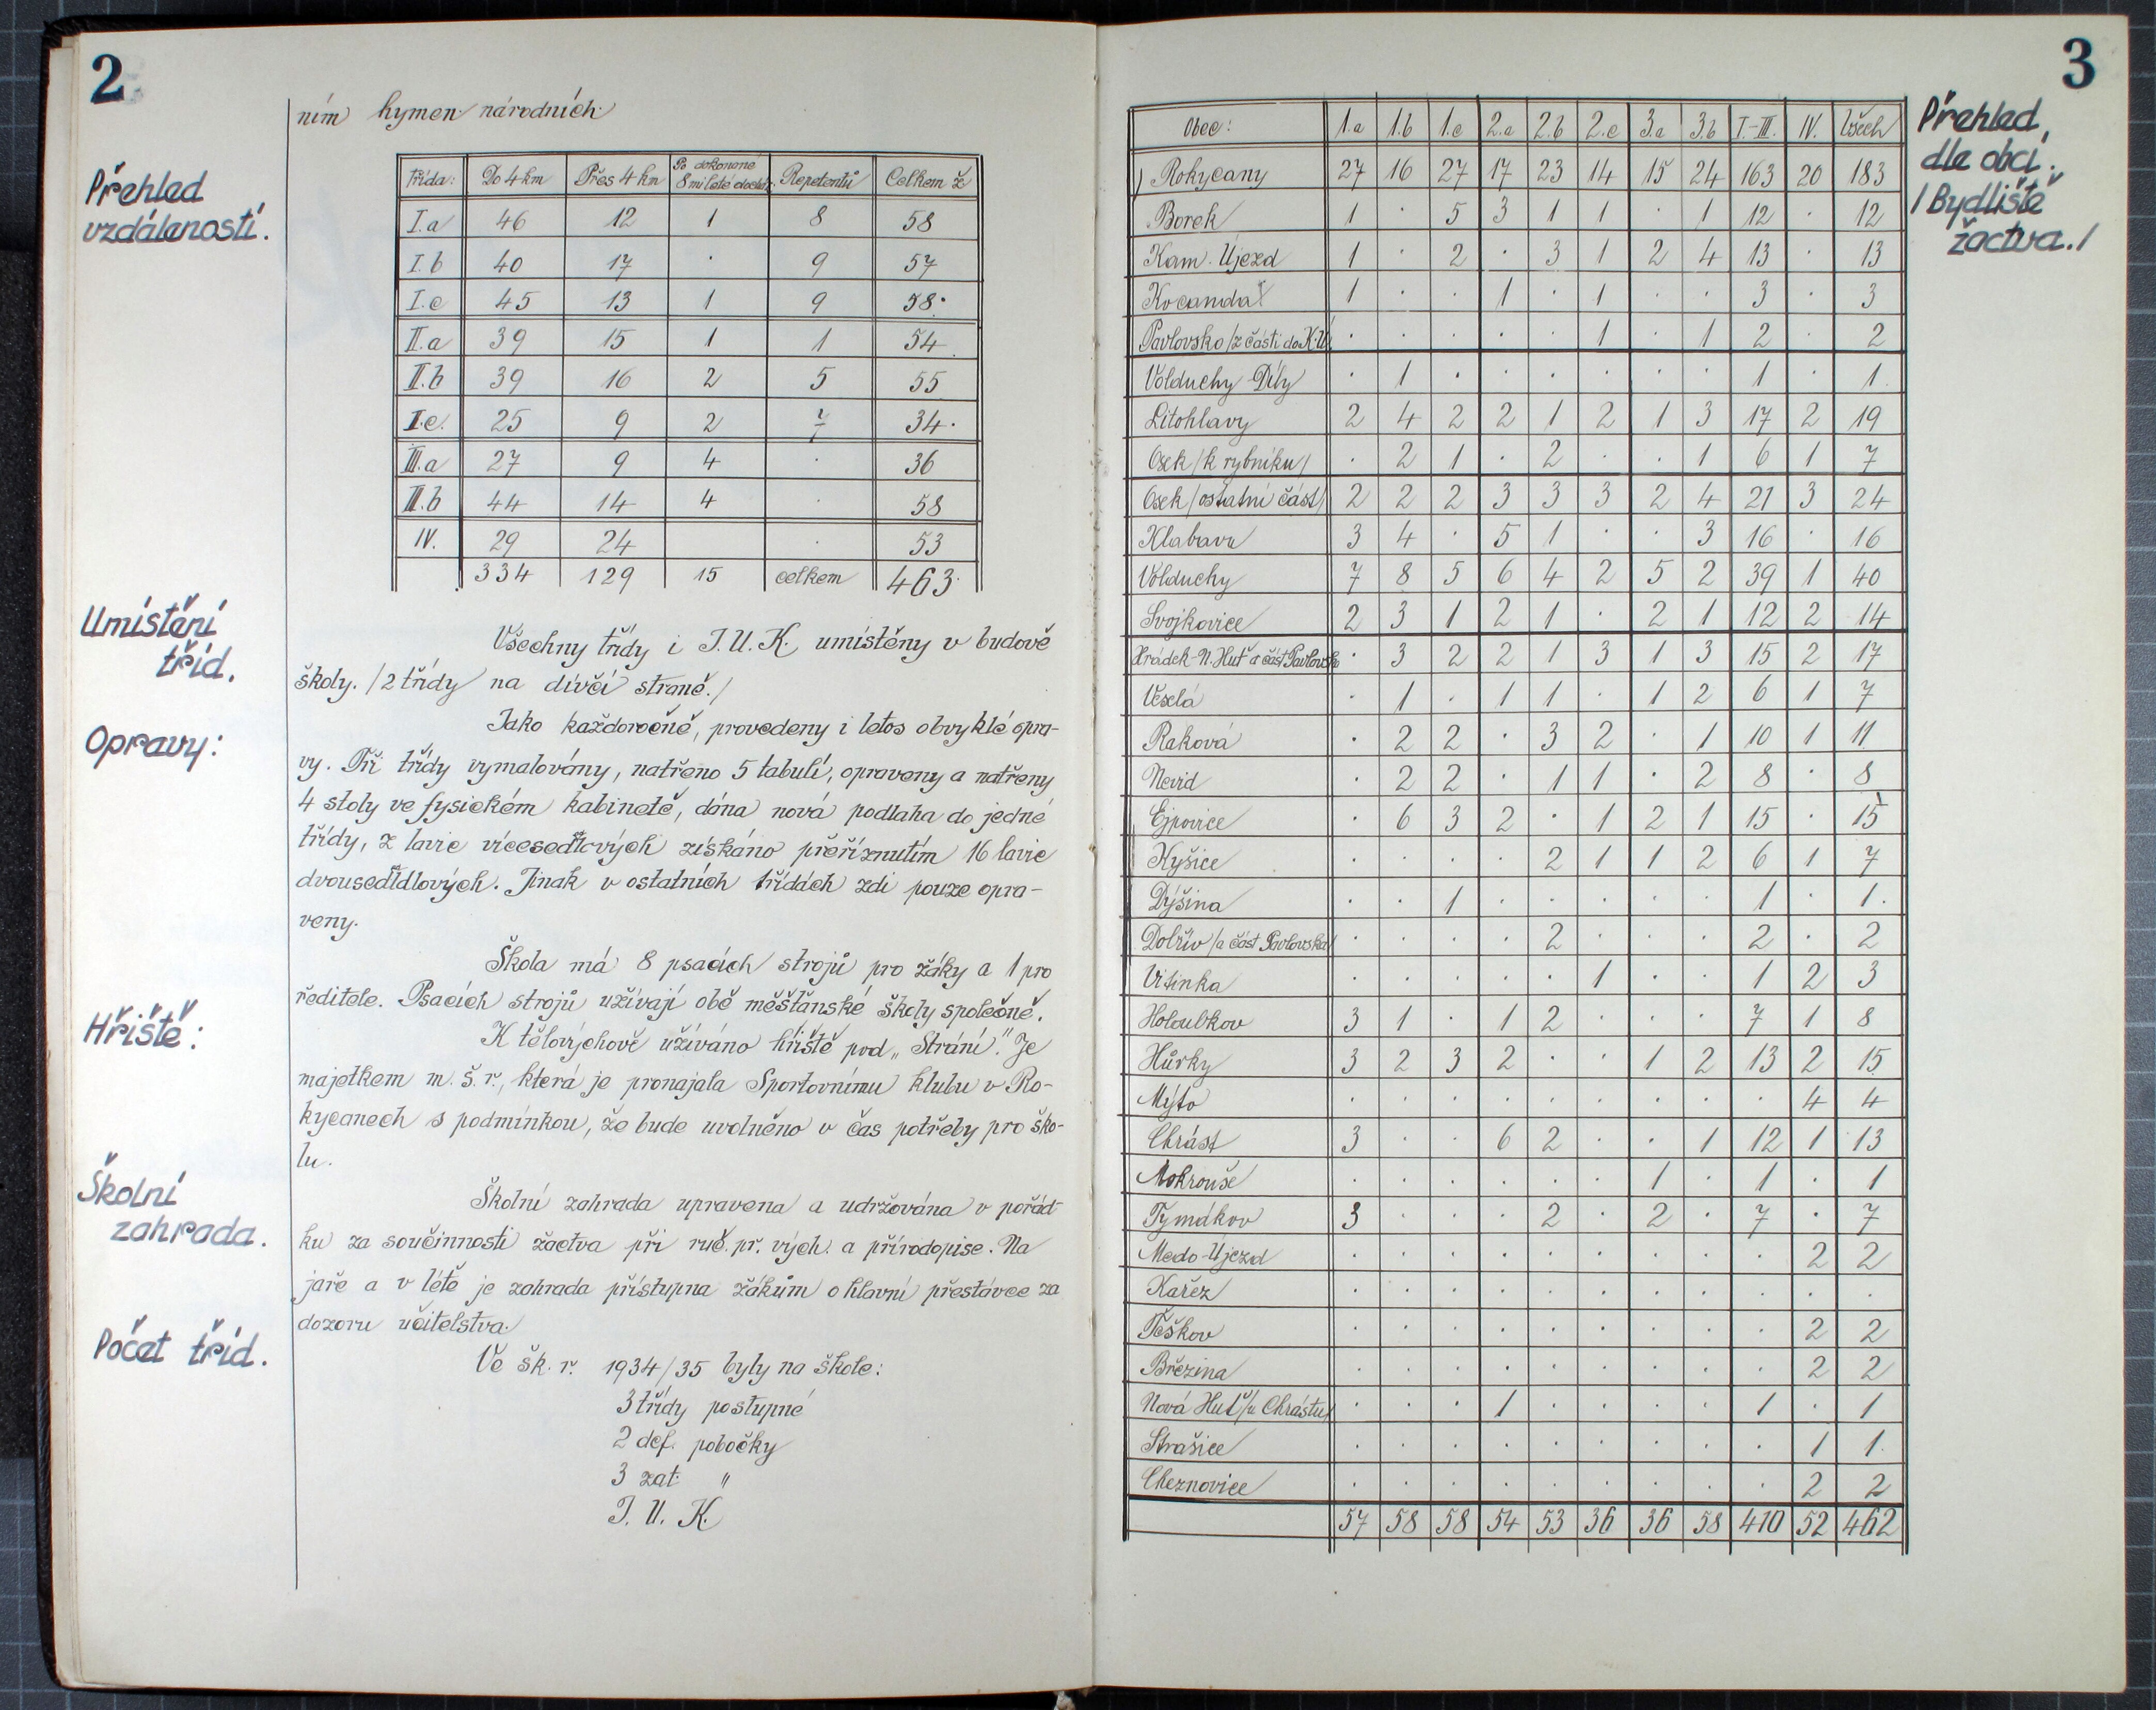 2
ním hymen národních.
Přehled
vzdáleností.
Třída: Do 4 km Přes 4 km Po dokonané 8mi leté docház. Repetentů Celkem ž
I.a 46 12 1 8 58
I.b 40 17 . 9 57
I.c 45 13 1 9 58.
II.a 39 15 1 1 54
II.b 39 16 2 5 55
II.c. 25 9 2 7 34.
III.a 27 9 4 . 36
III.b 44 14 4 . 58
IV. 29 24 . 53
334 129 15 celkem 463.
Umístění
tříd.
Všechny třídy i J. U. K. umístěny v budově
školy. /2 třídy na dívčí straně./
Opravy:
Jako každoročně, provedeny i letos obvyklé opra-
vy. Tři třídy vymalovány, natřeno 5 tabulí, opraveny a natřeny
4 stoly ve fysickém kabinetě, dána nová podlaha do jedné
třídy, z lavic vícesedlových získáno přeříznutím 16 lavic
dvousedadlových. Jinak v ostatních třídách zdi pouze opra-
veny.
Škola má 8 psacích strojů pro žáky a 1 pro
ředitele. Psacích strojů užívají obě měšťanské školy společně.
Hřiště:
K tělovýchově užíváno hřiště pod „Strání." Je
majetkem m. š. r., která je pronajala Sportovnímu klubu v Ro-
kycanech s podmínkou, že bude uvolněno v čas potřeby pro ško-
lu.
Školní
zahrada.
Školní zahrada upravena a udržována v pořád-
ku za součinnosti žactva při ruč. pr. vých. a přírodopise. Na
jaře a v létě je zahrada přístupna žákům o hlavní přestávce za
dozoru učitelstva.
Počet tříd.
Ve šk. r. 1934/35 byly na škole:
3 třídy postupné
2 def. pobočky
3 zat. "
J. U. K.
3
Přehled,
dle obcí.
/Bydliště
žactva./
Obec: 1.a 1.b 1.c 2.a 2.b 2.c 3.a 3.b I.-III. IV. Všech
Rokycany 27 16 27 17 23 14 15 24 163 20 183
Borek 1 . 5 3 1 1 . 1 12 . 12
Kam. Újezd 1 . 2 . 3 1 2 4 13 . 13
Kocanda 1 . . 1 . 1 . . 3 . 3
Pavlovsko /z části do K.Ú. . . . . . 1 . 1 2 . 2
Volduchy Díly . 1 . . . . . . 1 . 1.
Litohlavy 2 4 2 2 1 2 1 3 17 2 19
Osek /k rybníku/ . 2 1 . 2 . . 1 6 1 7
Osek /ostatní část/ 2 2 2 3 3 3 2 4 21 3 24
Klabava 3 4 . 5 1 . . 3 16 . 16
Volduchy 7 8 5 6 4 2 5 2 39 1 40
Svojkovice 2 3 1 2 1 . 2 1 12 2 14
Hrádek-N. Huť a část Pavlovska . 3 2 2 1 3 1 3 15 2 17
Veselá . 1 . 1 1 . 1 2 6 1 7
Raková . 2 2 . 3 2 . 1 10 1 11
Nevid . 2 2 . 1 1 . 2 8 . 8
Ejpovice . 6 3 2 . 1 2 1 15 . 15
Kyšice . . . . 2 1 1 2 6 1 7
Dýšina . . 1 . . . . . 1 . 1.
Dobřív /a část Pavlovska/ . . . . 2 . . . 2 . 2
Vitinka . . . . . 1 . . 1 2 3
Holoubkov 3 1 . 1 2 . . . 7 1 8
Hůrky 3 2 3 2 . . 1 2 13 2 15
Mýto . . . . . . . . . 4 4
Chrást 3 . . 6 2 . . 1 12 1 13
Mokrouše . . . . . . 1 . 1 . 1
Tymákov 3 . . . 2 . 2 . 7 . 7
Medo-Újezd . . . . . . . . . 2 2
Kařez . . . . . . . . . . .
Těškov . . . . . . . . . 2 2
Březina . . . . . . . . . 2 2
Nová Huť /u Chrástu/ . . . 1 . . . . 1 . 1
Strašice . . . . . . . . . 1 1.
Cheznovice . . . . . . . . . 2 2
57 58 58 54 53 36 36 58 410 52 462